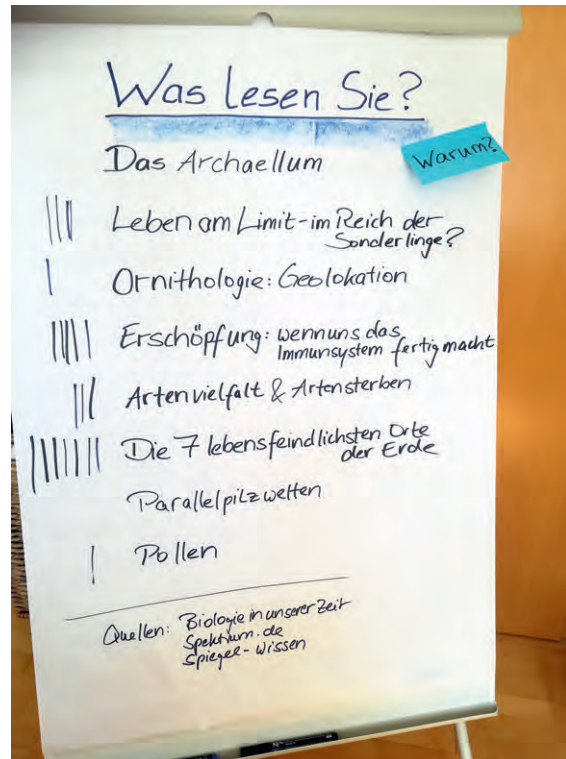 Was lesen Sie?
Warum?
Das Archaellum
Leben am Limit - im Reich der
Sonderlinge?
Ornithologie: Geolokation
Erschöpfung: wenn uns das
Immunsystem fertig macht
Artenvielfalt & Artensterben
Die 7 lebensfeindlichsten Orte
der Erde
Parallelpilzwelten
Pollen
Quellen: Biologie in unserer Zeit
Spektrum.de
Spiegel - Wissen